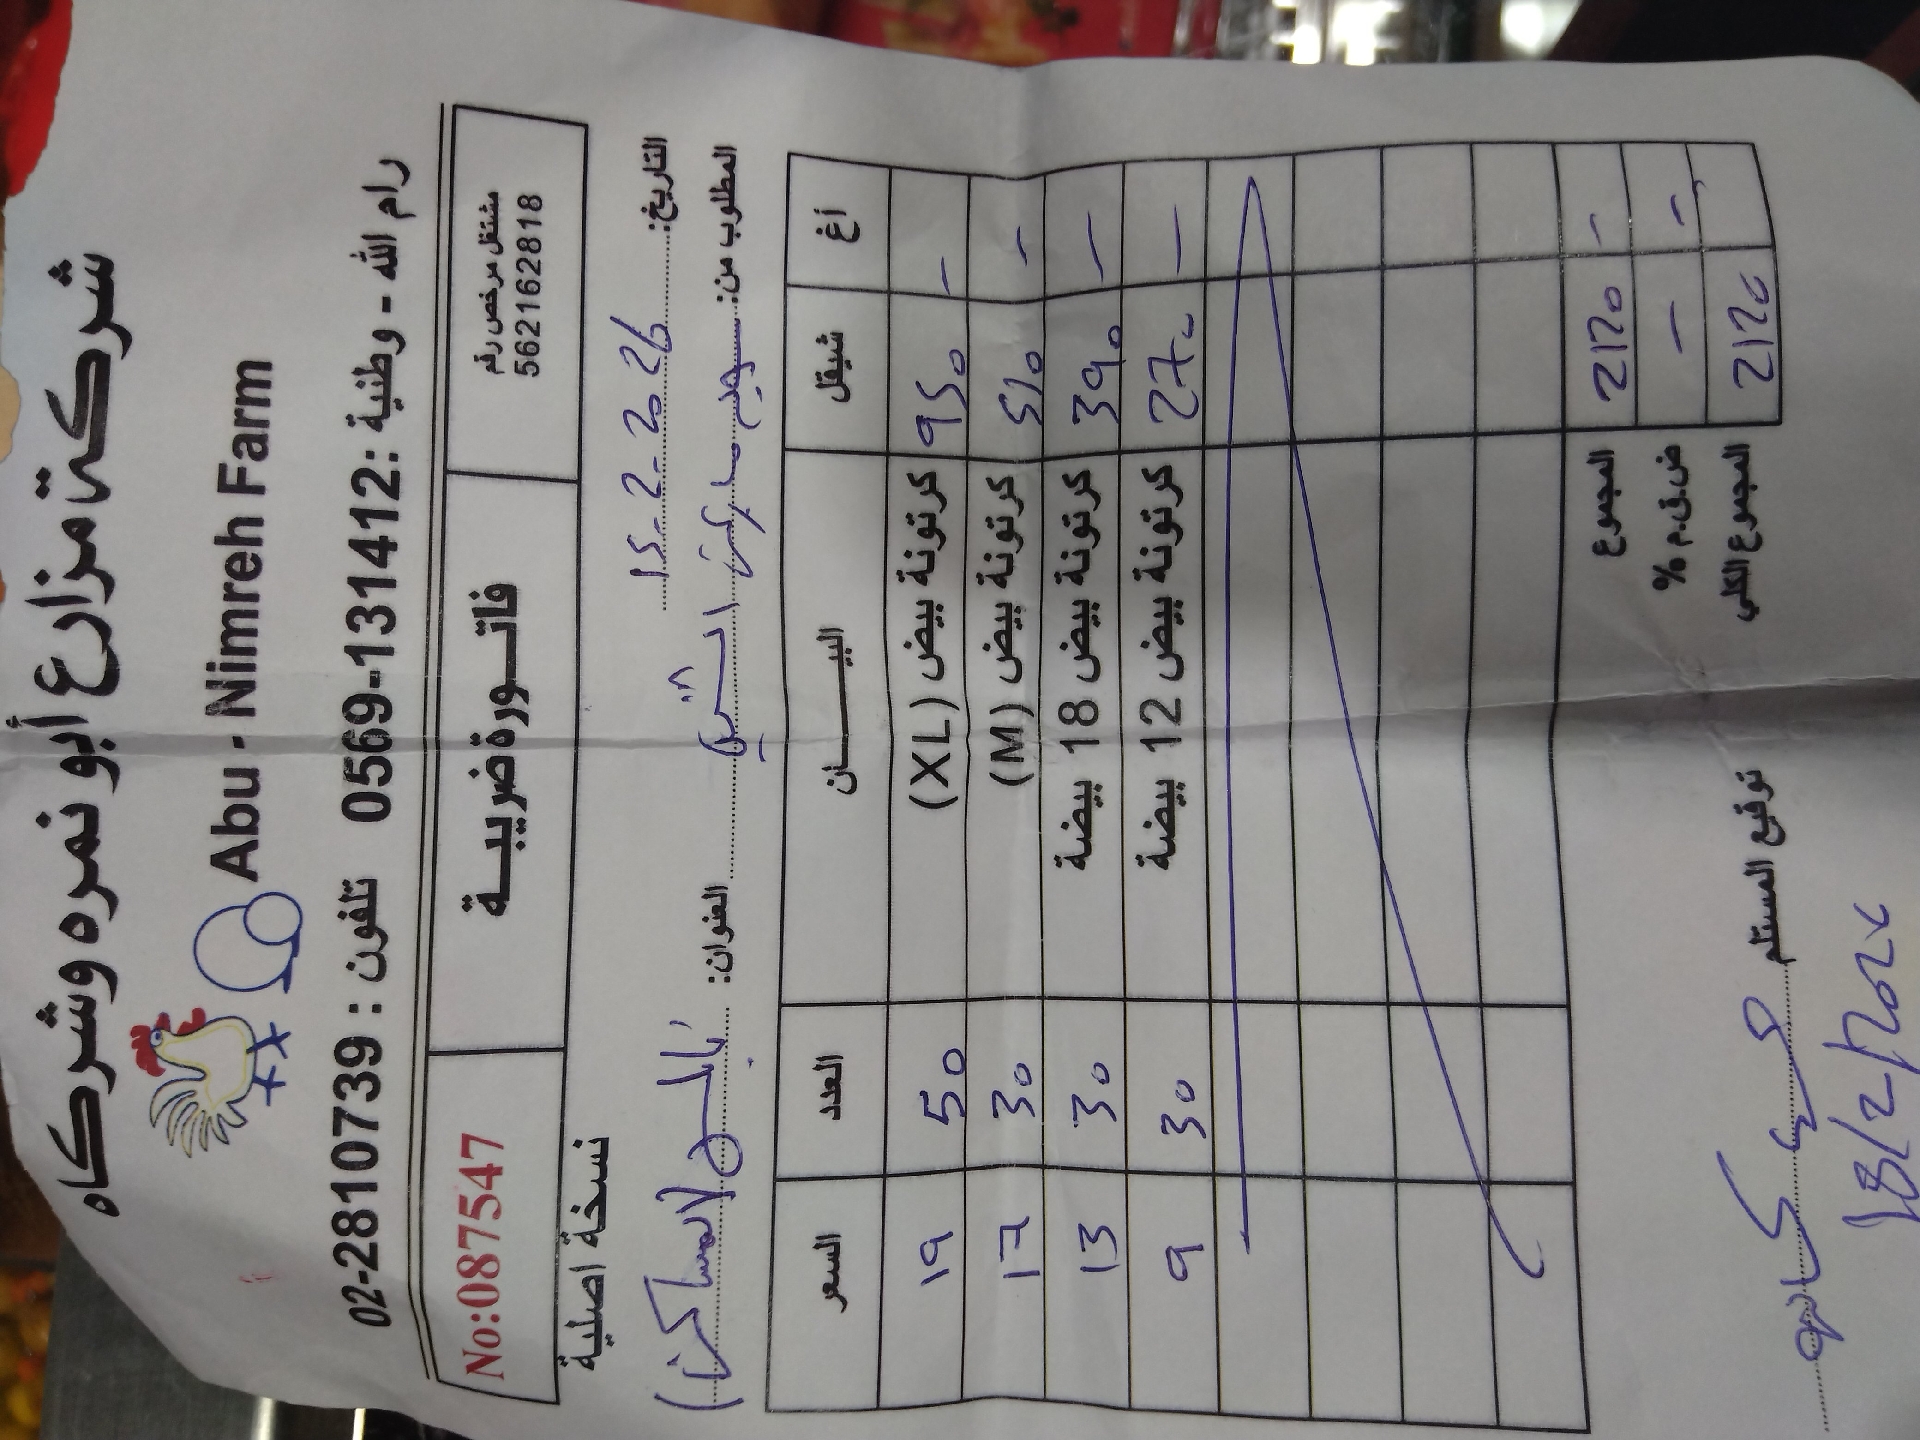 شركة مزارع أبو نمره وشركاه
Abu - Nimreh Farm
رام الله - وطنية : 0569-131412 تلفون : 02-2810739
مشتغل مرخص رقم
562162818
فاتورة ضريبية
No:087547
نسخة اصلية
التاريخ: 15-2-2026
المطلوب من: سوبر ماركت
العنوان:
أغ شيقل البيـــان العدد السعر
- 950 كرتونة بيض (XL) 50 19
- 510 كرتونة بيض (M) 30 17
- 390 كرتونة بيض 18 بيضة 30 13
- 270 كرتونة بيض 12 بيضة 30 9
- 2120 المجموع
- - ض.ق.م %
2120 المجموع الكلي
توقيع المستلم
18/2/202